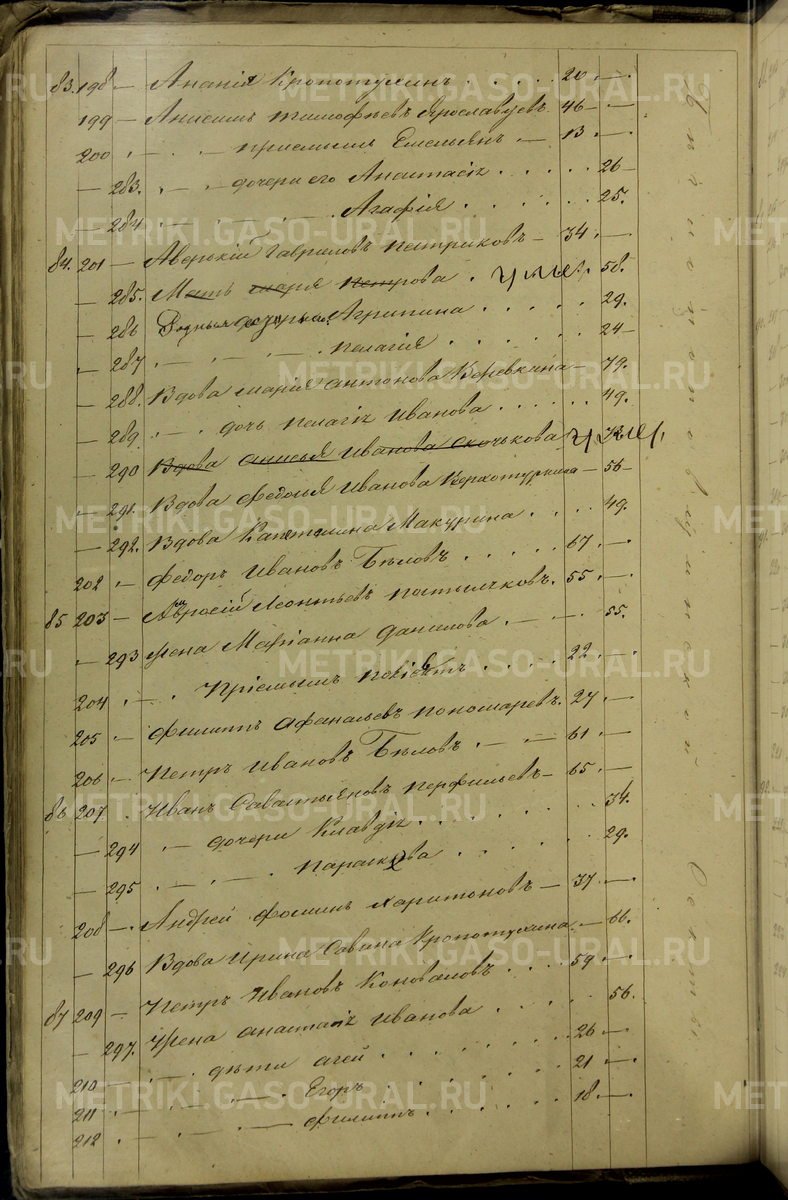 83. 198 — Ананія Кропотухинъ . . . . . 20 —
199 — Анисимъ Тимофѣевъ Ярославцевъ 46 —
200 — приемышъ Емельянъ — 13 —
283. дочери его Анастасія . . . . . 26
284 Агафія . . . . . 25.
84. 201 — Аверкій Гавриловъ Петриковъ — 34. —
285. Мать Марія Петрова . умер. 58.
286 Родныя Агрипина . . . . . 29.
287 Пелагія . . . . . 24
288. Вдова Марія Антонова Коревкина — 79.
289. дочь Пелагія Иванова . . . . . 49.
290 Вдова Анисья Иванова Скочькова умер.
291. Вдова Федосья Иванова Верхотуркина — 56
292. Вдова Капитилина Макурина . . . . 49.
202 Федоръ Ивановъ Бѣловъ . . . . . 67 —
85 203 — Амвросій Леонтьевъ Постыляковъ. 55. —
293 жена Маріанна Данилова . — — . 55.
204 Пріемышъ . . . . 22. —
205 Филиппъ Афанасьевъ Пономаревъ. 27 —
206 Петръ Ивановъ Бѣловъ . — — 61 —
86 207 Иванъ Савастьяновъ Перфильевъ — 65. —
294 дочери Клавдія . . . . . 34.
295 Параскова . . . . . 29.
208 Андрей Фоминъ Харитоновъ — 37. —
296 Вдова Ирина Савина Кропотухина — 66.
87 209 — Петръ Ивановъ Коноваловъ . . . 59. —
297. Жена Анастасія Иванова . . . . . 56.
210 — дѣти Агей . . . . . 26 —
211 Егоръ . . . . . 21 —
212 Филиппъ . . . . . 18. —
METRIKI.GASO-URAL.RU